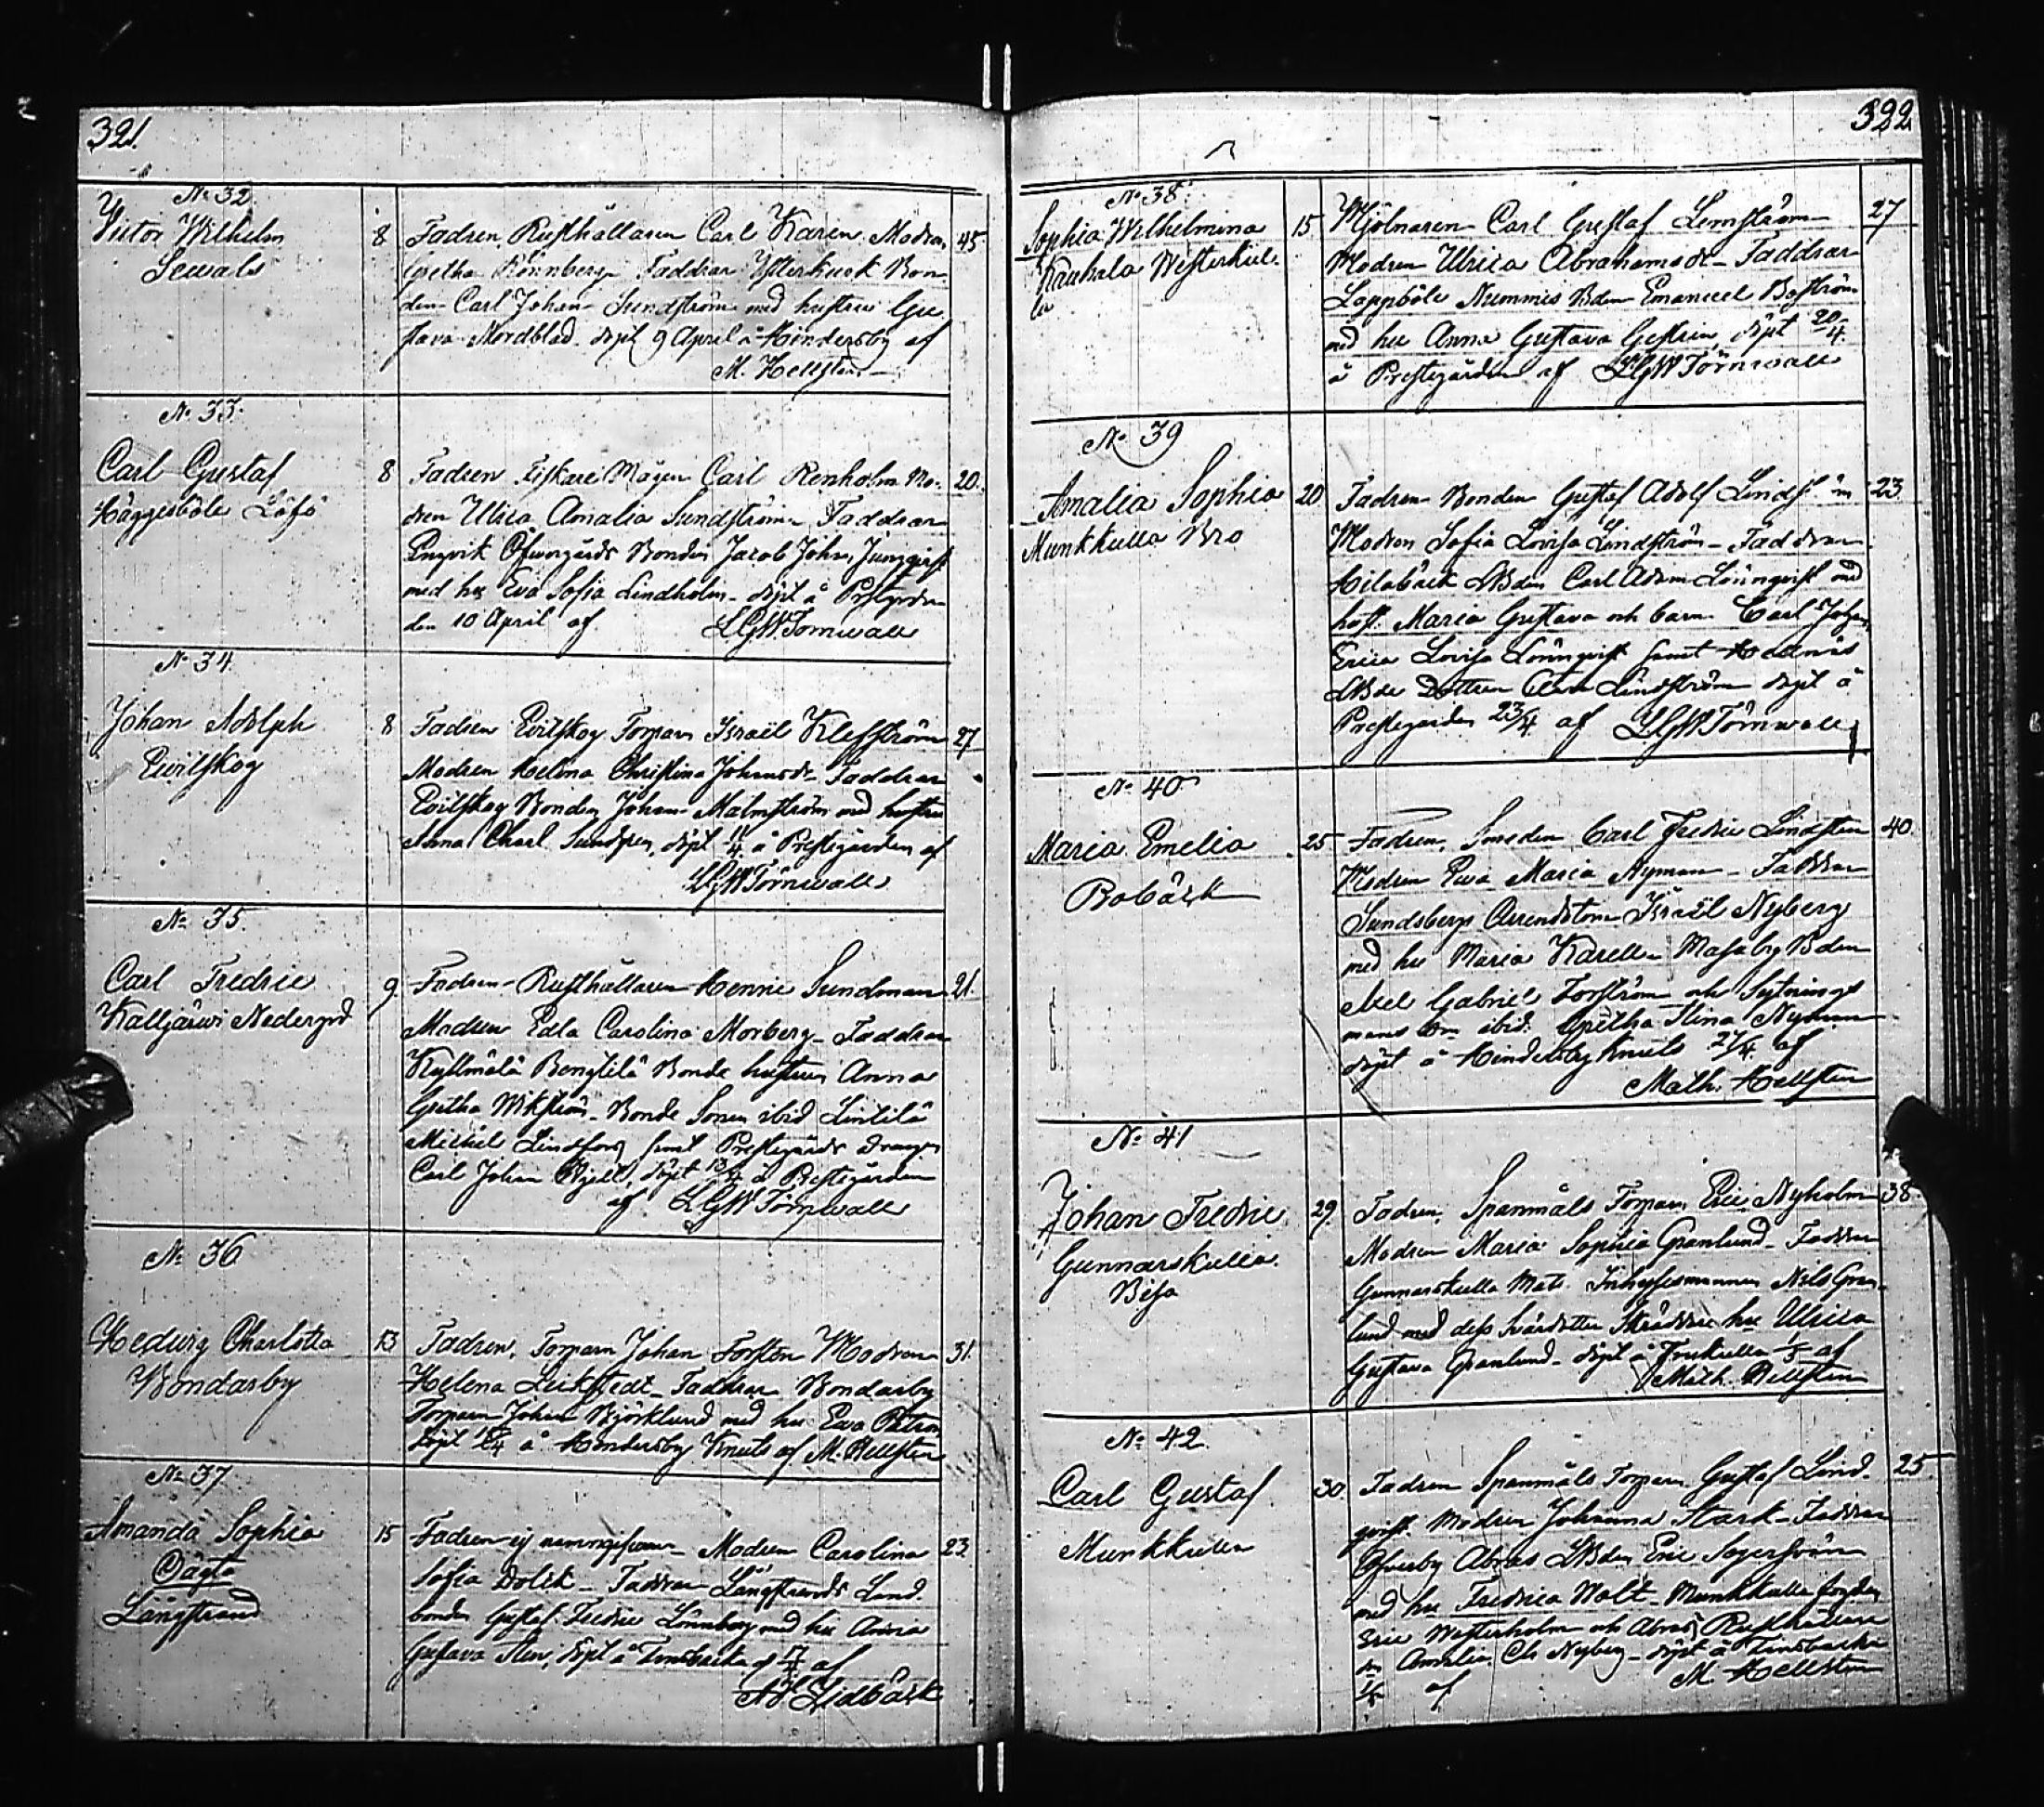 321.
No 32
Victor Wilhelm
Sewals
8
Fadren Rusthållaren Carl Karén. Modren
45
Gretha Rönnberg. Faddrar Ysterkurk Bon
den Carl Johan Sundström med hustru Gu
stava Nordblad. döpt 9 April å Hindersby af
M. Hellsten
No 33.
Carl Gustaf
Häggesböle Löfö
8
Fadren Fiskare Mågen Carl Renholm Mo-
20.
dren Ulrica Amalia Sundström Faddrar
Öfvergårds Bonden Jacob Johs. Ljungqvist
med hu Eva Sofia Lindholm döpt å Prestgrden
den 10 April af
LGWTörnwall
No 34.
Johan Adolph
Evitskog
8
Fadren Evitskog Torpare Israël Klefström
27
Modren Helena Christina Johansdr Faddrar
Evitskog Bonden Johan Malmström med hustru
Anna Charl. Sundgren, döpt 11/4 å Prestegården af
LGWTörnwall
No 35.
Carl Fredric
Kalljärwi Nedergrd
9.
Fadren Rusthållaren Henric Sundman
21
Modren Edla Carolina Morberg Faddrar
Kyllmälä Bengtilä Bonde hustrun Anna
Gretha Wikström Bonde Sonen ibid Lintilä
Michel Lindfors samt Prestegårds drängen
Carl Johan Kjell, döpt 13/4 å Prestegården
af LGWTörnwall
No 36
Hedvig Charlotta
Wondarby
13
Fadren, Torparn Johan Forstén Modren
31.
Helena Leikstedt Faddrar Wondarby
Torparn Johan Björklund med hu Ewa
döpt 15/4 å Hindersby Knuts af M. Hellsten
No 37
Amanda Sophia
Oägta
Långstrand
15
Fadren ej namngifven Modren Carolina
23
Sofia Faddrar Långstrands Land
bonden Gustaf Fredric Lönnberg med hu Anna
Gustava Sten, döpt å Finsbacka af
Lidbäck
322
No 38
Sophia Wilhelmina
Kauhala Westerkul
la
15
Mjölnaren Carl Gustaf Lemström
27
Modren Ulrica Abrahamsdr Faddrar
Lappböle Nummis Bden Emanuel Boström
med hu Anna Gustava döpt 20/4
å Prestegården af LGWTörnwall
No 39
Amalia Sophia
Munkkulla Bro
20
Fadren Bonden Gustaf Adolf Lindström
23
Modren Sofia Lovisa Lindström Faddrar
LBden Carl Adam Lönnqvist med
hust. Maria Gustava och barn Carl Johan,
Erica Lovisa Lönnqvist samt
LBde Dottren Clara Lindström döpt å
Prestegården 23/4 af LGWTörnwall
No 40
Maria Emelia
Bobäck
25
Fadren, Smeden Carl Fredric Lindsten
40
Modren Ewa Maria Nyman Faddrar
Sundsberg Arrendatorn Israël Nyberg
med hu Maria Karell Masaby Bden
Axel Gabriel Forström och Sytnings
mans ibid. Gretha Stina Nyman
döpt å Hindersby Knuts 27/4 af
Math. Hellsten
No 41
Johan Fredric
Gunnarskulla
Bisa
29
Fadren, Spanmåls Torparn Eric Nyholm
38.
Modren Maria Sophia Granlund Faddrar
Gunnarskulla Mats Inhysesmannen Nils Gran-
lund med dess Svärdotter Skräddare hu Ulrica
Gustava Granlund döpt å 1/5 af
Math. Hellsten
No 42.
Carl Gustaf
Munkkulla
30
Fadren Spanmåls Torparn Gustaf Lind-
25
qvist Modren Johanna Stark Faddrar
Öfverby Abras LBden Eric Segerström
med hu Fredrica Malt Munkkulla
Eric Westerholm och Abras Rusthållare
Amalia Ch. Nyberg döpt å Finsbacka
1/5 af
M. Hellsten